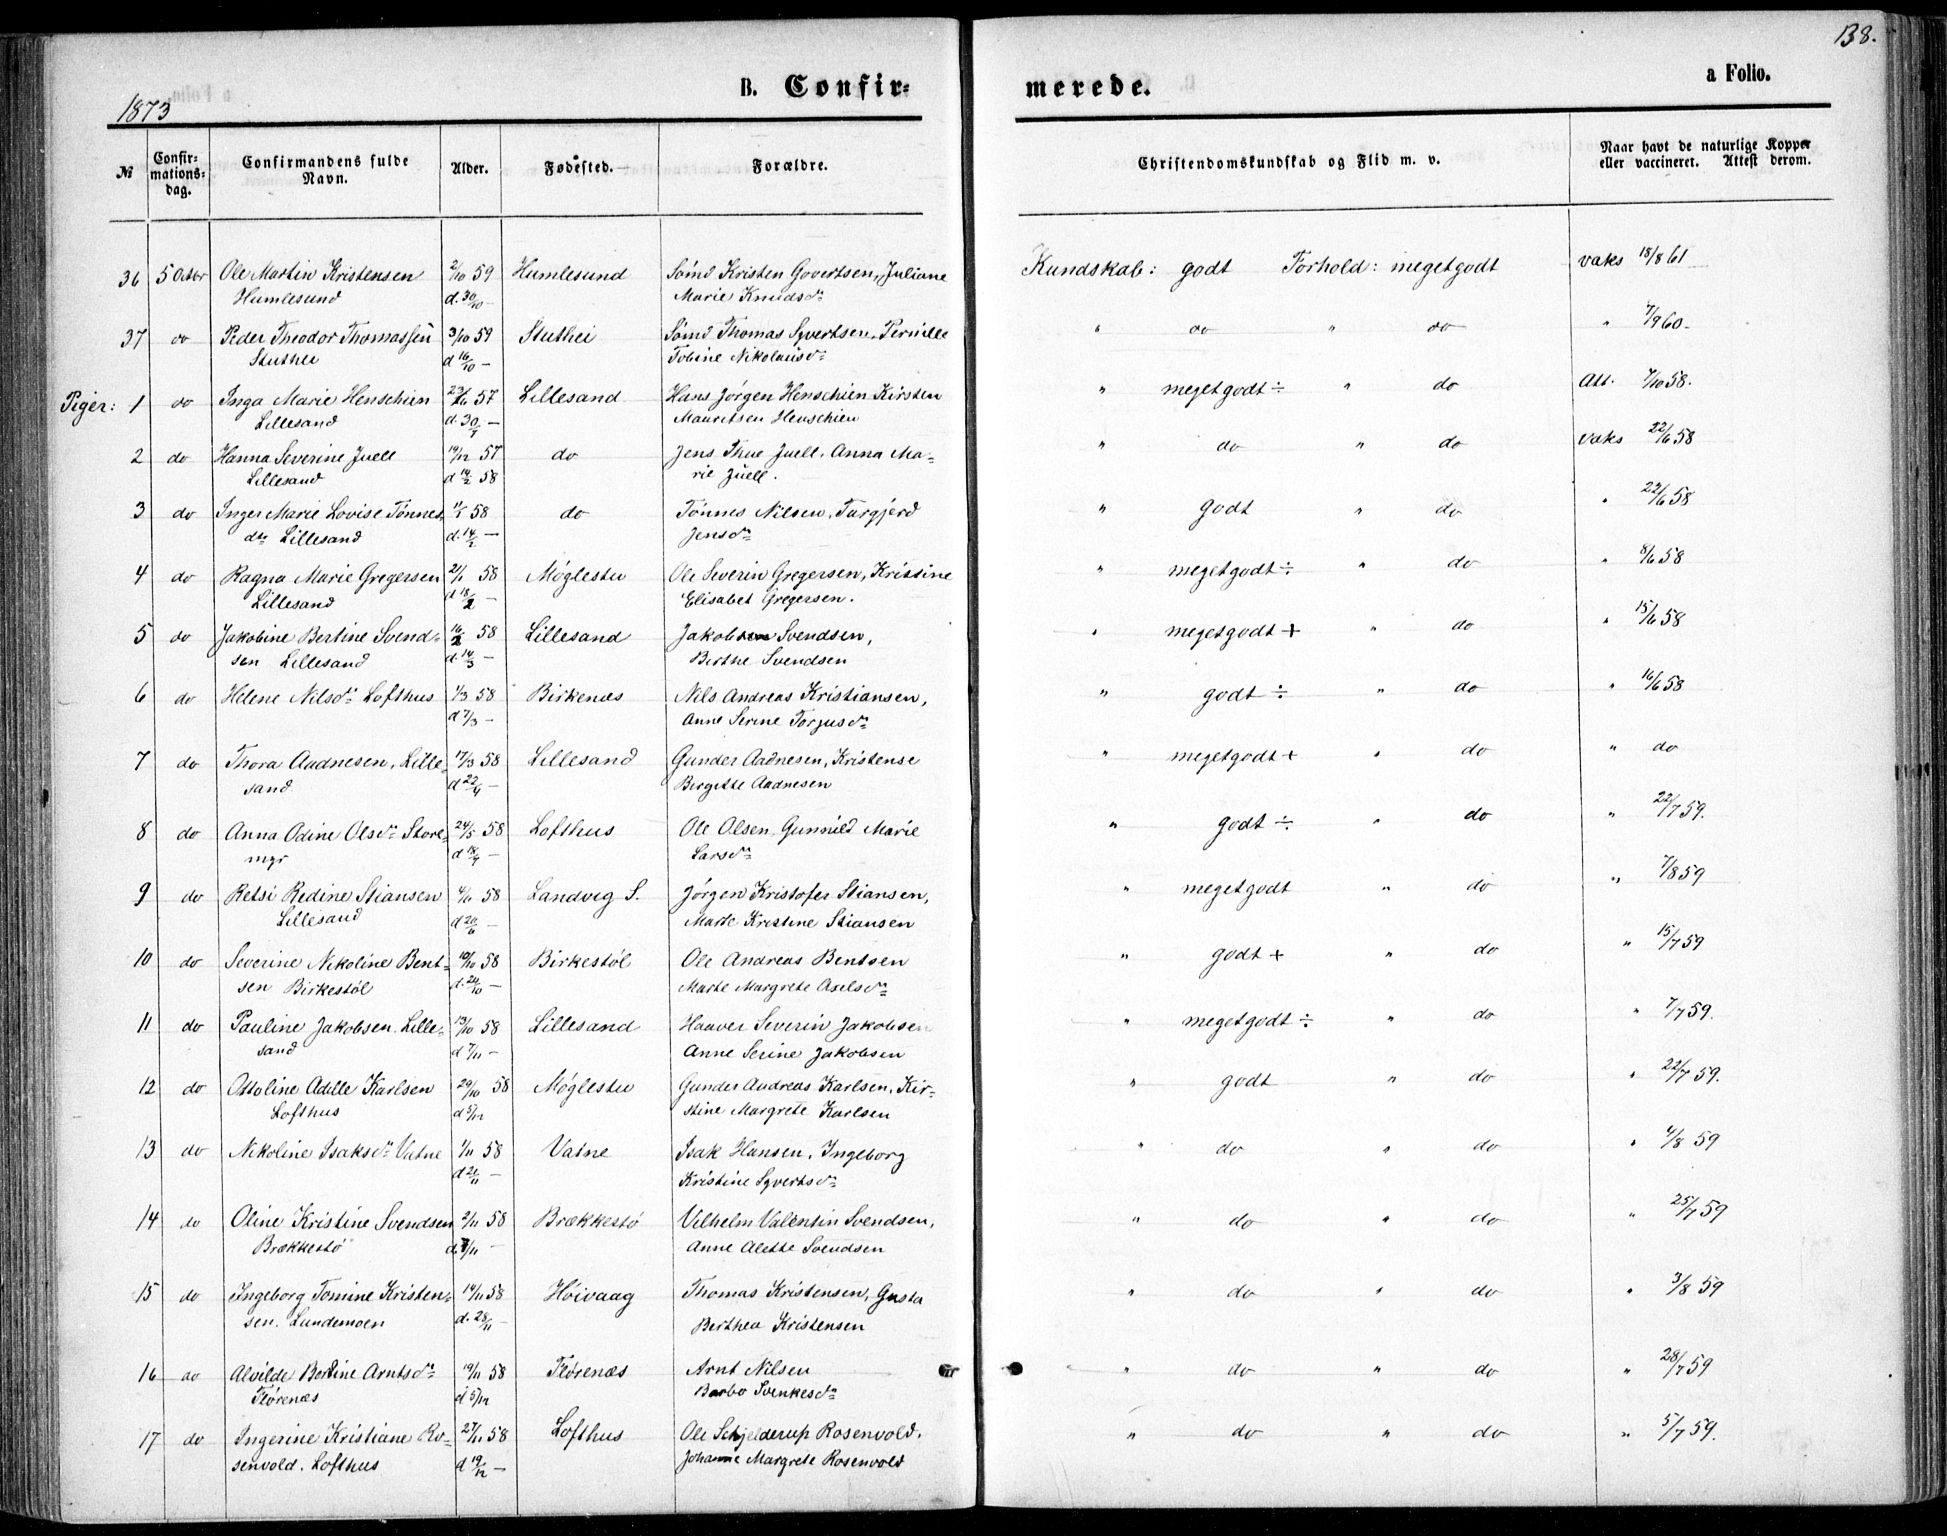 138.
1873
B. Confir-
merede.
a Folio.
№
Confir-
mations-
dag.
Confirmandens fulde
Navn.
Alder.
Fødested.
Forældre.
Christendomskundskab og Flid m. v.
Naar havt de naturlige Kopper
eller vaccineret. Attest derom.
36 5 Octbr Ole Martin Kristensen 2/10 59 Humlesund Sømd Kristen Govertsen, Juliane Kundskab: godt Forhold: megetgodt vaks 18/8 61
Humlesund d. 30/10 — Marie Knudsdr
37 do Peder Theodor Thomassen 3/10 59 Stuthei Sømd Thomas Syvertsen, Pernille " do " do " 7/9 60.
Stuthei d 16/10 — Tobine Nikolausdr
Piger: 1 do Inga Marie Henschien 57 Lillesand Hans Jørgen Henschien Kirsten " megetgodt ÷ " do Att. 7/10 58.
Lillesand — Mauritsen Henschien
2 do Hanna Severine Juell 19/12 57 do Jens Thue Juell, Anna Ma- " do " do vaks 22/6 58
Lillesand d 14/2 58 rie Juell.
3 do Inger Marie Lovise Tønnes- 1/1 58 do Tønnes Nilsen, Targjerd " godt " do " 22/6 58
dtr Lillesand d. 14/2 — Jensdr
4 do Ragna Marie Gregersen 2/1 58 Møglestu Ole Severin Gregersen, Kristine " megetgodt ÷ " do " 8/6 58
Lillesand d 18/2 — Elisabet Gregersen.
5 do Jakobine Bertine Svend- 16/2 58 Lillesand Jakobsen Svendsen, " megetgodt + " do " 15/6 58
sen Lillesand d. 14/3 — Birthe Svendsen
6 do Helene Nilsdr Lofthus 1/3 58 Birkenæs Nils Andreas Kristiansen, " godt ÷ " do " 16/6 58
d 7/3 — Anne Serine Torjusdr
7 do Thora Aadnesen, Lille- 17/3 58 Lillesand Gunder Aadnesen, Kristense " megetgodt + " do " do
sand d 22/4 — Birgitte Aadnesen
8 do Anna Odine Olsdr Store- 24/5 58 Lofthus Ole Olsen, Gunnild Marie " godt ÷ " do " 22/7 59.
myr d 18/7 — Larsdr
9 do Retsi Redine Stiansen 4/6 58 Landvig S. Jørgen Kristofer Stiansen, " megetgodt " do " 7/8 59
Lillesand d 20/6 — Marte Kristine Stiansen
10 do Severine Nikoline Bent- 10/10 58 Birkestøl Ole Andreas Bentsen " godt + " do " 15/7 59
sen Birkestøl d. 24/10 — Marte Margrete Axelsdr
11 do Pauline Jakobsen. Lille- 13/10 58 Lillesand Haaver Severin Jakobsen " megetgodt ÷ " do " 7/7 59.
sand d 7/11 — Anne Serine Jakobsen
12 do Ottoline Adille Karlsen 29/10 58 Møglestu Gunder Andreas Karlsen, Kir- " godt " do " 22/7 59.
Lofthus d 5/12 stine Margrete Karlsen
13 do Nikoline Isaksdr Vatne 1/11 58 Vatne Isak Hansen, Ingeborg " do " do " 4/8 59
d 21/11 — Kristine Syvertsdr
14 do Oline Kristine Svendsen 2/11 58 Brækkestø Vilhelm Valentin Svendsen, " do " do " 25/7 59
Brækkestø d. 7/11 — Anne Alette Svendsen
15 do Ingeborg Tomine Kristen- 14/11 58 Høivaag Thomas Kristensen, Gusta " do " do " 3/8 59
sen. Lundemoen d. 28/11 — Berthea Kristensen
16 do Alvilde Bertine Arntsdr 19/11 58 Flørenæs Arnt Nilsen " do " do " 28/7 59
Flørenæs d 5/12 Barbo Svenkesdr
17 do Ingerine Kristiane Ro- 27/11 58 Lofthus Ole Schjelderup Rosenvold, " do " do " 5/7 59.
senvold. Lofthus d 19/12 — Johanne Margrete Rosenvold